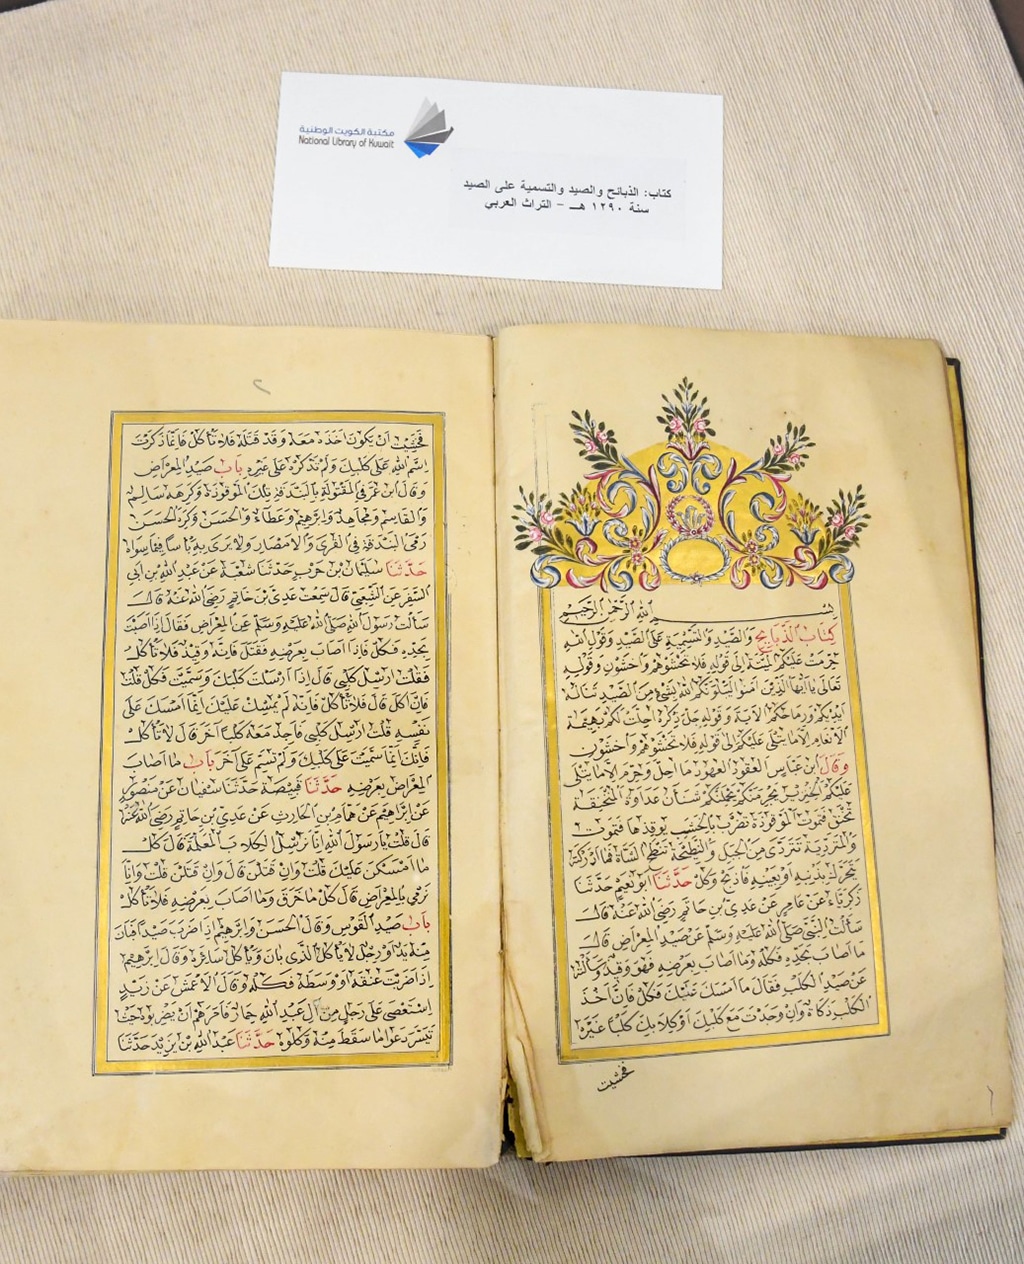 مكتبة الكويت الوطنية
National Library of Kuwait
كتاب: الذبائح والصيد والتسمية على الصيد
سنة ١٢٩٠ هـ - التراث العربي
بسم الله الرحمن الرحيم
كِتَابُ الذَّبَايِحِ وَالصَّيْدِ وَالتَّسْمِيَةِ عَلَى الصَّيْدِ وَقَوْلِ اللهِ
حُرِّمَتْ عَلَيْكُمُ الْمَيْتَةُ اِلَى قَوْلِهِ فَلَا تَخْشَوْهُمْ وَاخْشَوْنِ وَقَوْلِهِ
تَعَالَى يَا اَيُّهَا الَّذِينَ اٰمَنُوا لَيَبْلُوَنَّكُمُ اللهُ بِشَيْءٍ مِنَ الصَّيْدِ تَنَالُهُ
اَيْدِيكُمْ وَرِمَاحُكُمْ الْاٰيَةَ وَقَوْلِهِ جَلَّ ذِكْرُهُ اُحِلَّتْ لَكُمْ بَهِيمَةُ
الْاَنْعَامِ اِلَّا مَا يُتْلَى عَلَيْكُمْ اِلَى قَوْلِهِ فَلَا تَخْشَوْهُمْ وَاخْشَوْنِ
وَقَالَ ابْنُ عَبَّاسٍ الْعُقُودُ الْعُهُودُ مَا اُحِلَّ وَحُرِّمَ اِلَّا مَا يُتْلَى
عَلَيْكُمْ الْخِنْزِيرُ يَجْرِمَنَّكُمْ يَحْمِلَنَّكُمْ شَنَآنُ عَدَاوَةُ الْمُنْخَنِقَةُ
تُخْنَقُ فَتَمُوتُ الْمَوْقُوذَةُ تُضْرَبُ بِالْخَشَبِ يُوقِذُهَا فَتَمُوتُ
وَالْمُتَرَدِّيَةُ تَتَرَدَّى مِنَ الْجَبَلِ وَالنَّطِيحَةُ تُنْطَحُ الشَّاةُ فَمَا اَدْرَكْتَهُ
يَتَحَرَّكُ بِذَنَبِهِ اَوْ بِعَيْنِهِ فَاذْبَحْ وَكُلْ حَدَّثَنَا اَبُو نُعَيْمٍ حَدَّثَنَا
زَكَرِيَّاءُ عَنْ عَامِرٍ عَنْ عَدِيِّ بْنِ حَاتِمٍ رَضِيَ اللهُ عَنْهُ قَالَ
سَاَلْتُ النَّبِيَّ صَلَّى اللهُ عَلَيْهِ وَسَلَّمَ عَنْ صَيْدِ الْمِعْرَاضِ قَالَ
مَا اَصَابَ بِحَدِّهِ فَكُلْهُ وَمَا اَصَابَ بِعَرْضِهِ فَهُوَ وَقِيذٌ وَسَاَلْتُهُ
عَنْ صَيْدِ الْكَلْبِ فَقَالَ مَا اَمْسَكَ عَلَيْكَ فَكُلْ فَاِنَّ اَخْذَ
الْكَلْبِ ذَكَاةٌ وَاِنْ وَجَدْتَ مَعَ كَلْبِكَ اَوْ كِلَابِكَ كَلْبًا غَيْرَهُ
فخشيت
فَخَشِيْتَ اَنْ يَكُونَ اَخَذَهُ مَعَهُ وَقَدْ قَتَلَهُ فَلَا تَأْكُلْ فَاِنَّمَا ذَكَرْتَ
اسْمَ اللهِ عَلَى كَلْبِكَ وَلَمْ تَذْكُرْهُ عَلَى غَيْرِهِ بَابُ صَيْدِ الْمِعْرَاضِ
وَقَالَ ابْنُ عُمَرَ فِي الْمَقْتُولَةِ بِالْبُنْدُقَةِ تِلْكَ الْمَوْقُوذَةُ وَكَرِهَهُ سَالِمٌ
وَالْقَاسِمُ وَمُجَاهِدٌ وَاِبْرٰهِيمُ وَعَطَاءٌ وَالْحَسَنُ وَكَرِهَ الْحَسَنُ
رَمْيَ الْبُنْدُقَةِ فِي الْقُرَى وَالْاَمْصَارِ وَلَا يَرَى بِهِ بَأْسًا فِيمَا سِوَاهُ
حَدَّثَنَا سُلَيْمَانُ بْنُ حَرْبٍ حَدَّثَنَا شُعْبَةُ عَنْ عَبْدِ اللهِ بْنِ اَبِي
السَّفَرِ عَنِ الشَّعْبِيِّ قَالَ سَمِعْتُ عَدِيَّ بْنَ حَاتِمٍ رَضِيَ اللهُ عَنْهُ قَالَ
سَاَلْتُ رَسُولَ اللهِ صَلَّى اللهُ عَلَيْهِ وَسَلَّمَ عَنِ الْمِعْرَاضِ فَقَالَ اِذَا اَصَبْتَ
بِحَدِّهِ فَكُلْ فَاِذَا اَصَابَ بِعَرْضِهِ فَقَتَلَ فَاِنَّهُ وَقِيذٌ فَلَا تَأْكُلْ
فَقُلْتُ اُرْسِلُ كَلْبِي قَالَ اِذَا اَرْسَلْتَ كَلْبَكَ وَسَمَّيْتَ فَكُلْ قُلْتُ
فَاِنْ اَكَلَ قَالَ فَلَا تَأْكُلْ فَاِنَّهُ لَمْ يُمْسِكْ عَلَيْكَ اِنَّمَا اَمْسَكَ عَلَى
نَفْسِهِ قُلْتُ اُرْسِلُ كَلْبِي فَاَجِدُ مَعَهُ كَلْبًا آخَرَ قَالَ لَا تَأْكُلْ
فَاِنَّكَ اِنَّمَا سَمَّيْتَ عَلَى كَلْبِكَ وَلَمْ تُسَمِّ عَلَى آخَرَ بَابُ مَا اَصَابَ
الْمِعْرَاضُ بِعَرْضِهِ حَدَّثَنَا قَبِيصَةُ حَدَّثَنَا سُفْيَانُ عَنْ مَنْصُورٍ
عَنْ اِبْرٰهِيمَ عَنْ هَمَّامِ بْنِ الْحَارِثِ عَنْ عَدِيِّ بْنِ حَاتِمٍ رَضِيَ اللهُ عَنْهُ
قَالَ قُلْتُ يَا رَسُولَ اللهِ اِنَّا نُرْسِلُ الْكِلَابَ الْمُعَلَّمَةَ قَالَ كُلْ
مَا اَمْسَكْنَ عَلَيْكَ قُلْتُ وَاِنْ قَتَلْنَ قَالَ وَاِنْ قَتَلْنَ قُلْتُ وَاِنَّا
نَرْمِي بِالْمِعْرَاضِ قَالَ كُلْ مَا خَزَقَ وَمَا اَصَابَ بِعَرْضِهِ فَلَا تَأْكُلْ
بَابُ صَيْدِ الْقَوْسِ وَقَالَ الْحَسَنُ وَاِبْرٰهِيمُ اِذَا ضَرَبَ صَيْدًا فَبَانَ
مِنْهُ يَدٌ اَوْ رِجْلٌ لَا يَأْكُلُ الَّذِي بَانَ وَيَأْكُلُ سَائِرَهُ وَقَالَ اِبْرٰهِيمُ
اِذَا ضَرَبْتَ عُنُقَهُ اَوْ وَسَطَهُ فَكُلْهُ وَقَالَ الْاَعْمَشُ عَنْ زَيْدٍ
اِسْتَعْصَى عَلَى رَجُلٍ مِنْ آلِ عَبْدِ اللهِ حِمَارٌ فَاَمَرَهُمْ اَنْ يَضْرِبُوهُ حَيْثُ
تَيَسَّرَ دَعُوا مَا سَقَطَ مِنْهُ وَكُلُوهُ حَدَّثَنَا عَبْدُ اللهِ بْنُ يَزِيدَ حَدَّثَنَا